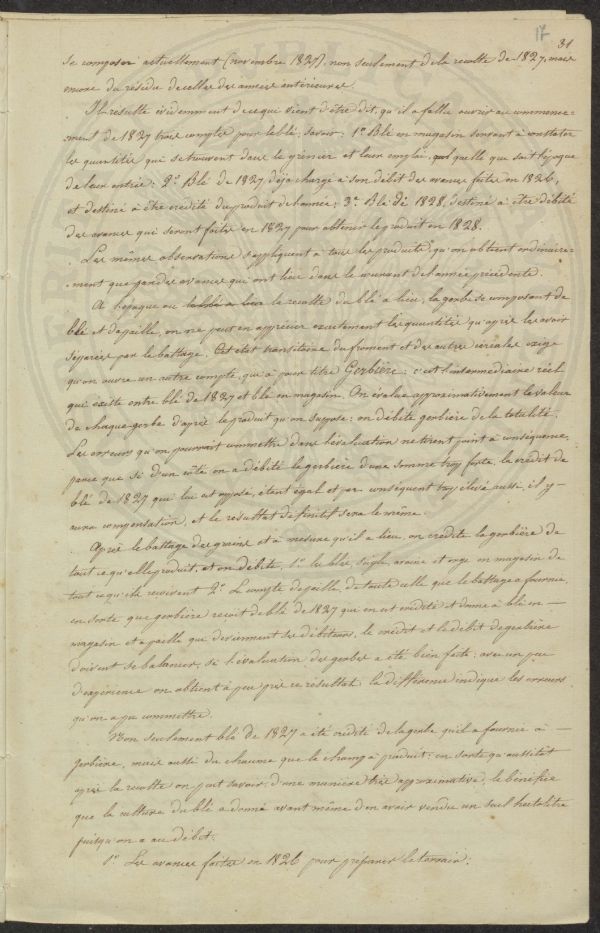 17
31
se composer actuellement (novembre 1827), non seulement de la recolte de 1827, mais
encore du résidu de celles des années antérieures.
Il resulte évidemment de ce que vient d'être dit, qu'il a fallu ouvrir au commence-
ment de 1827 trois comptes pour le blé, savoir: 1° Blé en magasin servant à constater
les quantités qui se trouvent dans le grenier et leur emploi, quelle que soit l'époque
de leur entrée; 2° Blé de 1827 déja chargé à son débit des avances faites en 1826,
et destiné à être crédité du produit de l'année; 3° Blé de 1828, destiné à être débité
des avances qui seront faites en 1827 pour obtenir le produit en 1828.
Les mêmes observations s'appliquent à tous les produits, qu'on obtient ordinaire-
ment que par des avances qui ont lieu dans le courant de l'année précédente.
A l'epoque ou la recolte du blé a lieu, la gerbe se composant de
blé et de paille, on ne peut en apprécier exactement les quantités qu'après les avoir
séparées par le battage. Cet état transitoire du froment et des autres céréales exige
qu'on ouvre un autre compte, qui a pour titre Gerbière: c'est l'intermédiaire réel
qui existe entre blé de 1827 et blé en magasin. On évalue approximativement la valeur
de chaque gerbe d'après le produit qu'on suppose: on débite gerbière de la totalité.
Les erreurs qu'on pourrait commettre dans l'évaluation ne tirent point à conséquence,
parce que si d'un côté on a débité la gerbière d'une somme trop forte, le crédit de
blé de 1827 qui lui est opposé, étant égal et par conséquent trop élevé aussi, il y
aura compensation, et le résultat définitif sera le même.
Après le battage des grains et à mesure qu'il a lieu, on crédite la gerbière de
tout ce qu'elle produit, et on débite, 1° le blé, seigle, avoine et orge en magasin de
tout ce qu'ils reçoivent 2° Le compte de paille, de toute celle que le battage a fournie,
en sorte que gerbière reçoit de blé de 1827 qui en est crédité et donne à blé en
magasin et à paille qui deviennent ses débiteurs, le crédit et le débit de gerbière
doivent se balancer, si l'évaluation des gerbes a été bien faite: avec un peu
d'expérience on obtient à peu près ce résultat: la différence indique les erreurs
qu'on a pu commettre.
Non seulement blé de 1827 a été crédité de la gerbe qu'il a fournie à
gerbière, mais aussi du chaume que le champ a produit: en sorte qu'aussitôt
après la recolte on peut savoir d'une manière très approximative, le bénéfice
que la culture du blé a donné avant même d'en avoir vendu un seul hectolitre
puisqu'on a au débit:
1° Les avances faites en 1826 pour préparer le terrain: